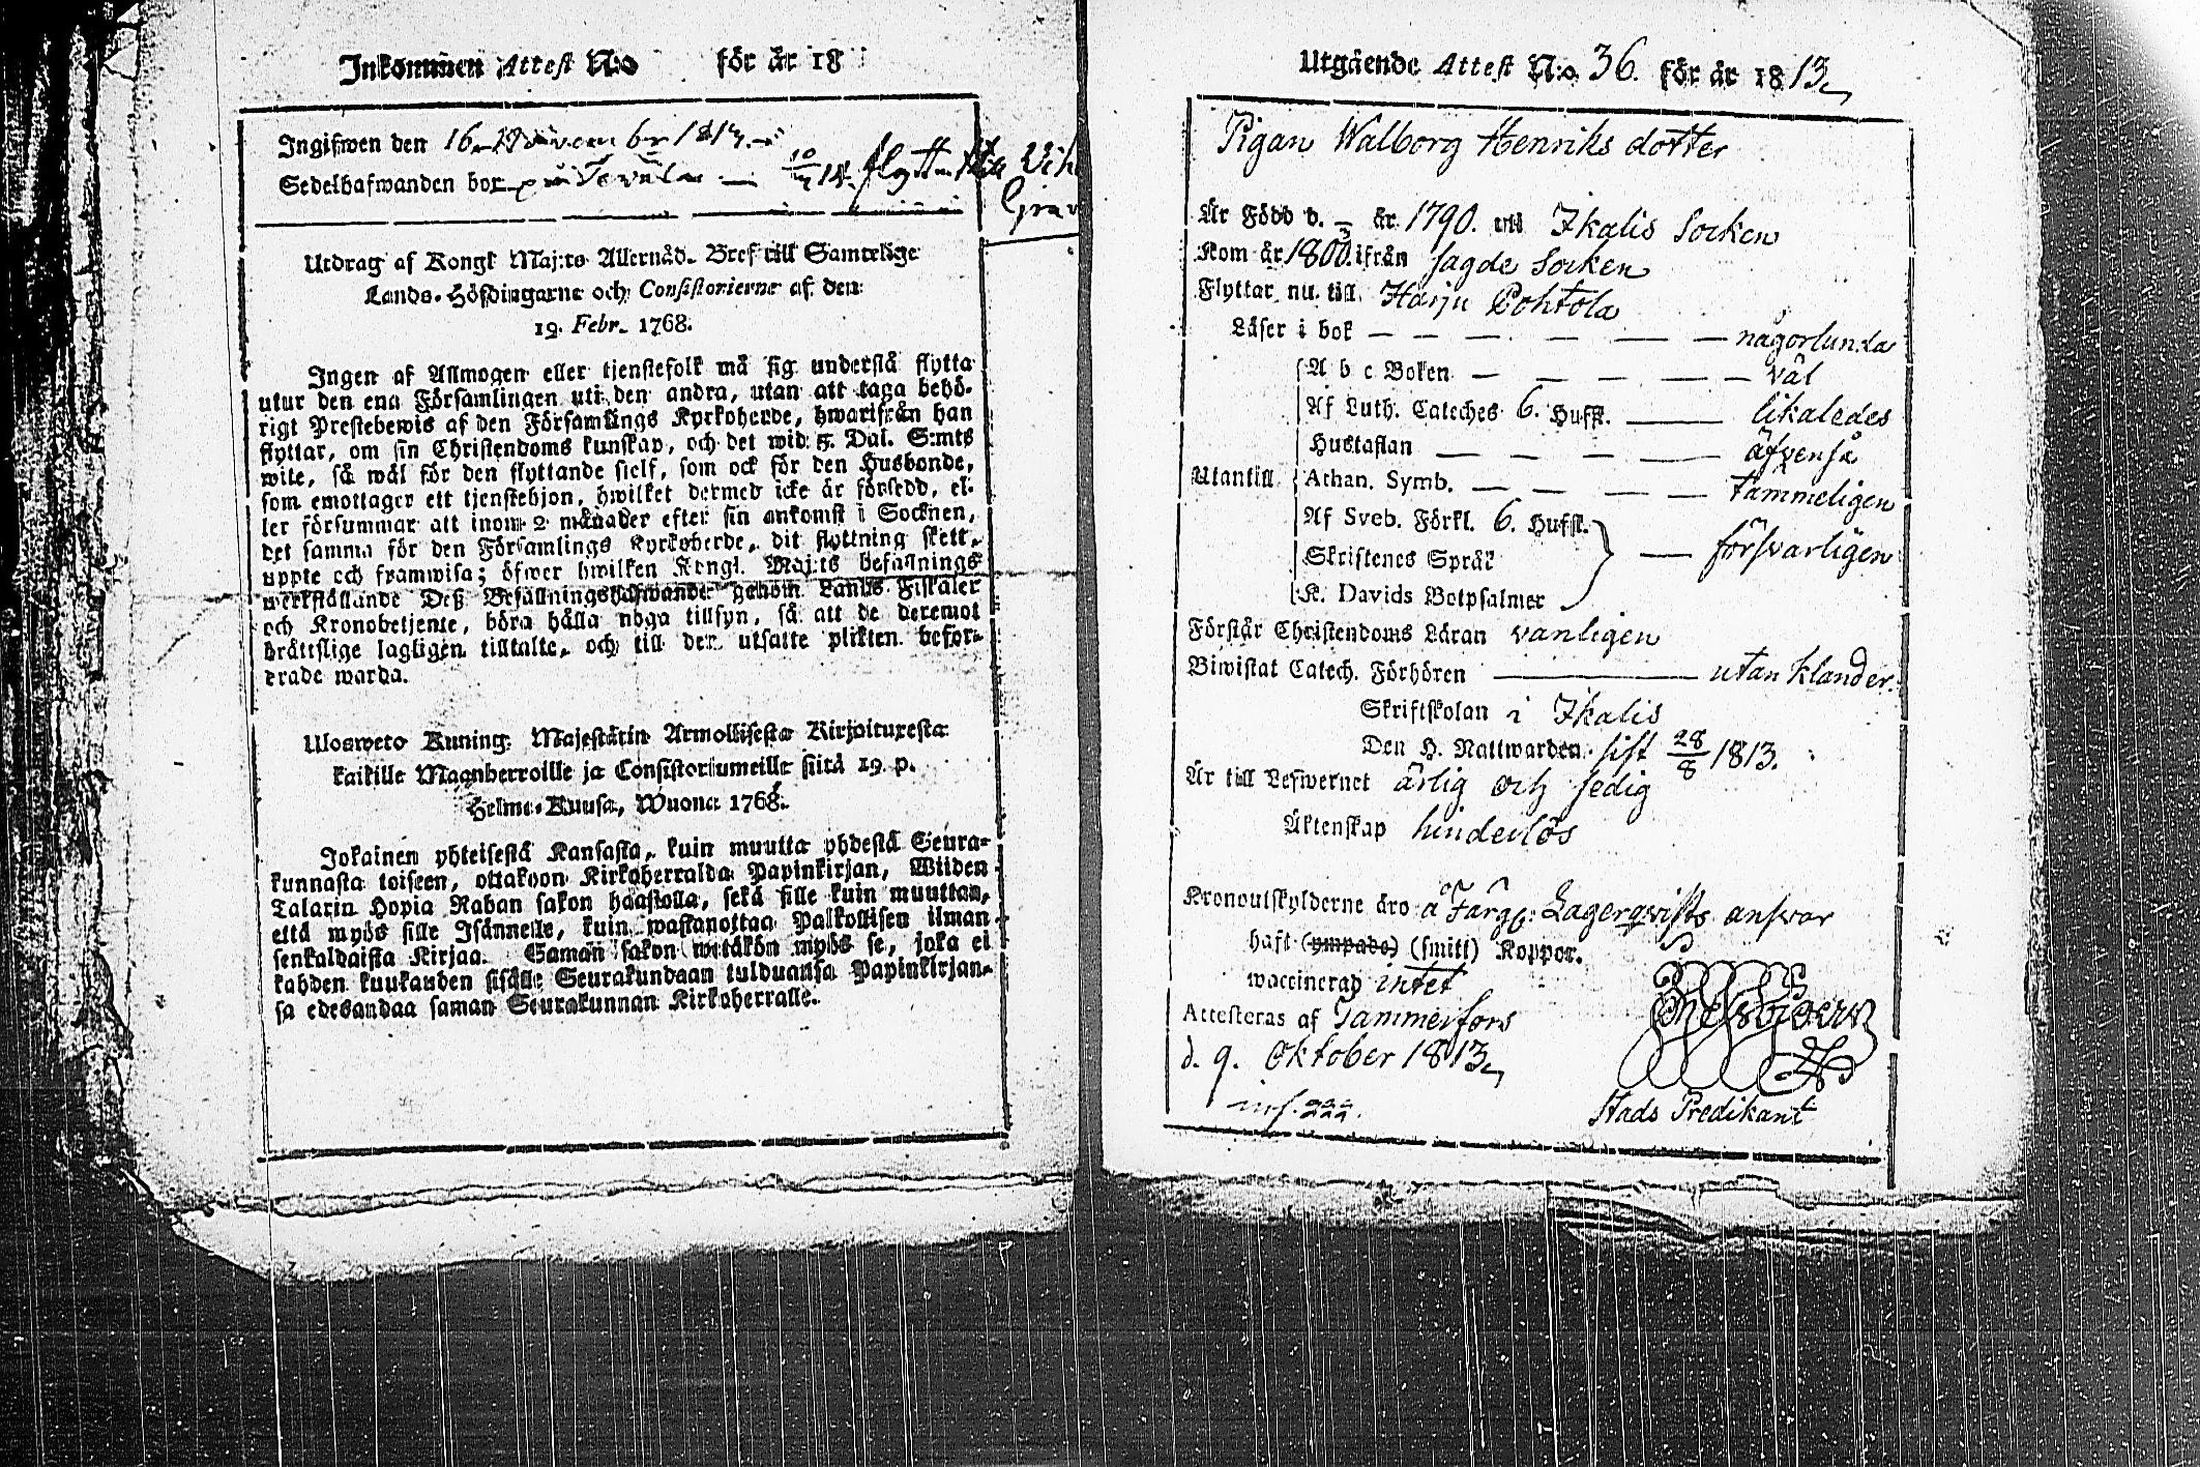 Inkommen Attest N:o för år 18
Ingifwen den 16 November 1813.
Sedelhafwanden bor på 18. flytt
Utdrag af Kongl Maj:ts Allernåd. Bref till Samtelige
Lands-Höfdingarne och Consistorierne af den
19. Febr. 1768.
Ingen af Allmogen eller tjenstefolk må sig understå flytta
utur den ena Församlingen uti den andra, utan att taga behö-
rigt Prestebewis af den Församlings Kyrkoherde, hwarifrån han
flyttar, om sin Christendoms kunskap, och det wid 5. Dal. S:mts
wite, så wäl för den flyttande sielf, som ock för den Husbonde,
som emottager ett tjenstehjon, hwilket dermed icke är försedd, el-
ler försummar att inom 2 månader efter sin ankomst i Socknen,
det samma för den Församlings Kyrkoherde, dit flyttning skett,
uppte och framwisa; öfwer hwilken Kongl. Maj:ts befallnings
werkställande Deß Befallningshafwande genom Lands Fiskaler
och Kronobetjente, böra hålla noga tillsyn, så att de deremot
brättslige lagligen tilltalte, och till den utsatte plikten befor-
drade warda.
Ulosweto Kuning. Majestätin Armollisesta Kirjoituxesta
kaikille Maanherroille ja Consistoriumeille siitä 19. p.
Helme-Kuusa, Wuona 1768.
Jokainen yhteisestä Kansasta, kuin muutta yhdestä Seura-
kunnasta toiseen, ottakoon Kirkoherralda Papinkirjan, Wiiden
Talarin Hopia Rahan sakon haastolla, sekä sille kuin muuttaa,
että myös sille Isännelle, kuin wastanottaa Palkollisen ilman
senkaldaista Kirjaa. Saman sakon wetäkön myös se, joka ei
kahden kuukauden sisälle Seurakundaan tulduansa Papinkirjan-
sa edesandaa saman Seurakunnan Kirkoherralle.
Utgående Attest N:o 36. för år 1813
Pigan Walborg Henriks dotter
Är Född d. – år 1790. uti Ikalis Socken
Kom år 1803. ifrån sagde Socken
Flyttar nu till Harju Pohtola
Läser i bok — — — — — — någorlunda
A b c Boken — — — — — väl
Af Luth. Cateches 6. Hufst. —— likaledes
Hustaflan — — — — äfvenså
Utantill Athan. Symb. — — — — tämmeligen
Af Sveb. Förkl. 6. Hufst.
Skriftenes Språk — försvarligen
K. Davids Botpsalmer
Förstår Christendoms Läran vanligen
Biwistat Catech. Förhören —— utan klander.
Skriftskolan i Ikalis
Den H. Nattwarden sist 28/8 1813.
Är till Lefwernet ärlig och sedig
Äktenskap hinderlös
Kronoutskylderne äro å Färg: Lagerqvists answar
haft (ympade) (smitt) Koppor.
waccinerad intet
Attesteras af Tammerfors
d. 9. Oktober 1813
Stads Predikant